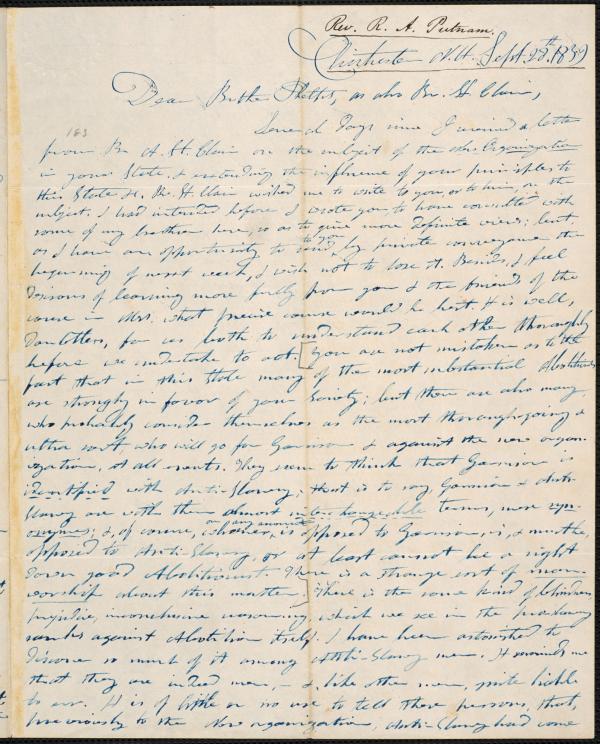 Rev. R. A. Putnam.
Chichester N.H. Sept. 28th. 1839
Dear Brother Phelps, as also Br. St Clair,
183
Several days since I received a letter
from Br A. St. Clair on the subject of the New Organization
in your State, & extending the influence of your principles to
this State &c. Br. St. Clair wished me to write to you, or to him, on the
subject. I had intended before I wrote you, to have consulted with
some of my brethren here, so as to give more definite views; but
as I have an opportunity to send to you by private conveyance the
beginning of next week, I wish not to lose it. Besides, I feel
desirous of learning more fully from you & the friends of the
cause in Mass. what precise course would be best. It is well,
doubtless, for us both to understand each other thoroughly
before we undertake to act. You are not mistaken as to the
fact that in this State many of the most substantial Abolitionists
are strongly in favor of your Society; but there are also many,
who probably consider themselves as the most thorough-going &
ultra sort who will go for Garrison & against the new organ-
ization, at all events. They seem to think that Garrison is
identified with Anti-Slavery; that is to say, Garrison & Anti-
Slavery are with them almost interchangeable terms, mere syn-
onymes; & of course, whoever, on any account is opposed to Garrison, is, & must be,
opposed to Anti-Slavery, or at least cannot be a right
down good Abolitionist. There is a strange sort of man-
worship about this matter. There is the same kind of blindness,
prejudice, inconclusive reasoning, which we see in the proslavery
ranks against Abolition itself. I have been astonished to
discover so much of it among Anti-Slavery men. It reminds me
that they are indeed men, & like other men, quite liable
to err. It is of little or no use to tell these persons, that,
previously to the New organization, Anti-Slavery had come